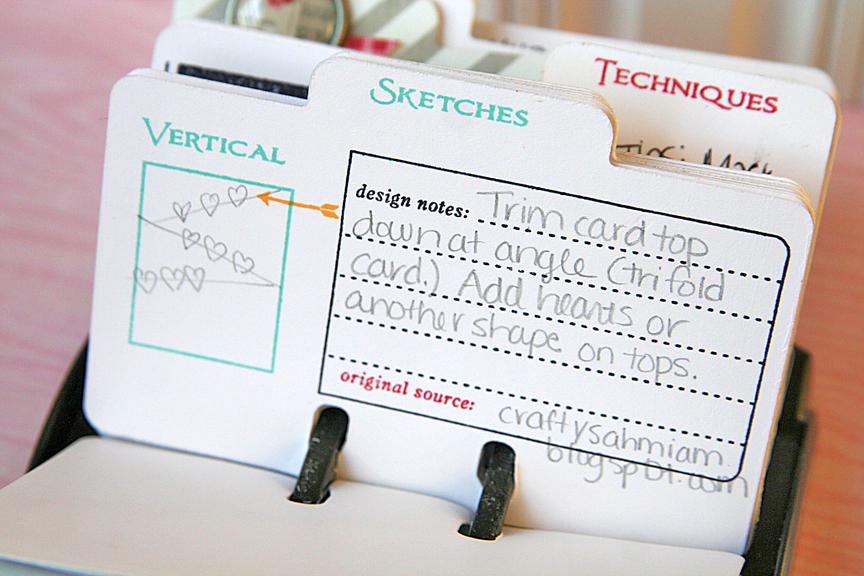 TECHNIQUES
SKETCHES
Tips: Mask
VERTICAL
design notes: Trim card top
down at angle (trifold
card.) Add hearts or
another shape on tops.
original source: craftysahmiam.
blogspot.com